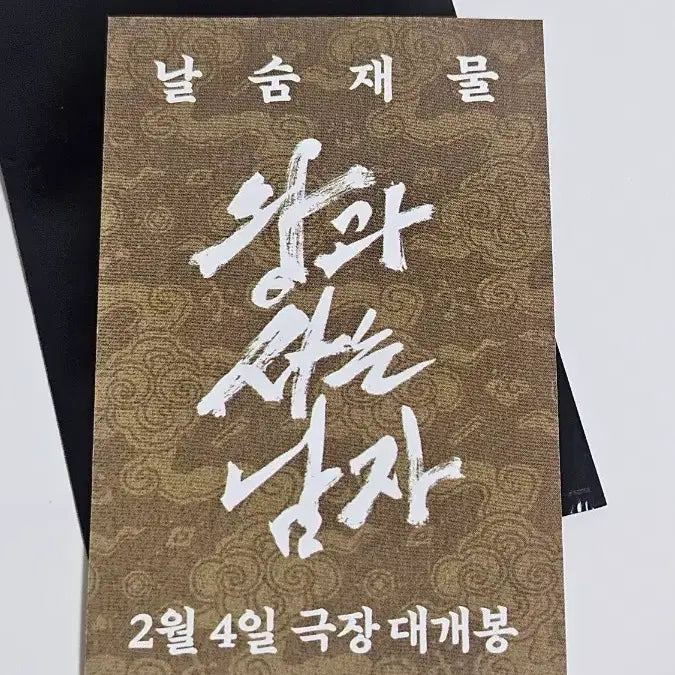 날 숨 재 물
왕과
사는
남자
2월 4일 극장 대개봉